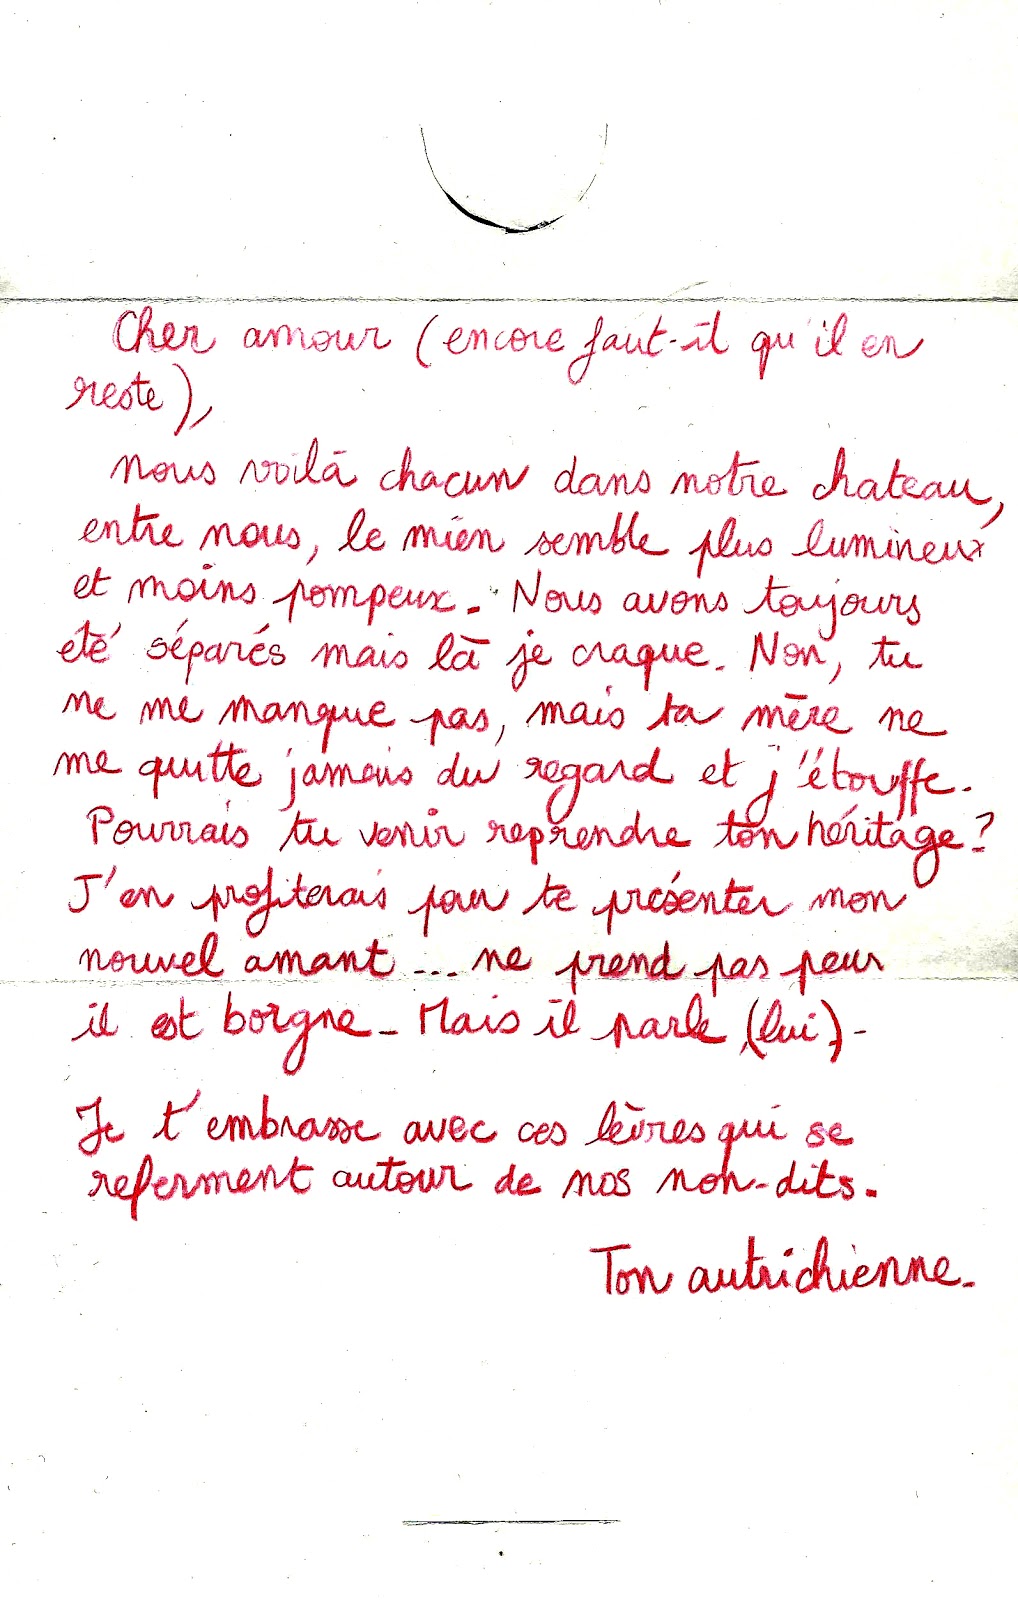 Cher amour (encore faut-il qu'il en
reste),
nous voilà chacun dans notre chateau,
entre nous, le mien semble plus lumineux
et moins pompeux. Nous avons toujours
été séparés mais là je craque. Non, tu
ne me manque pas, mais ta mère ne
me quitte jamais du regard et j'étouffe.
Pourrais tu venir reprendre ton héritage?
J'en profiterais pour te présenter mon
nouvel amant... ne prend pas peur
il est borgne - Mais il parle (lui) -
Je t'embrasse avec ces lèvres qui se
referment autour de nos non-dits.
Ton autrichienne.